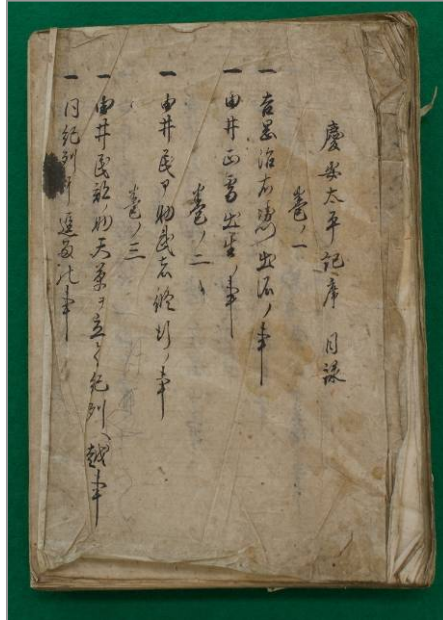 慶安太平記序 目録
巻ノ一
一 吉岡治右衛門出所ノ事
一 由井正雪出生ノ事
巻ノ二
一 由井民部助武者修行ノ事
巻ノ三
一 由井民部助天草ヲ立テ紀列ヘ越事
一 同紀列
事